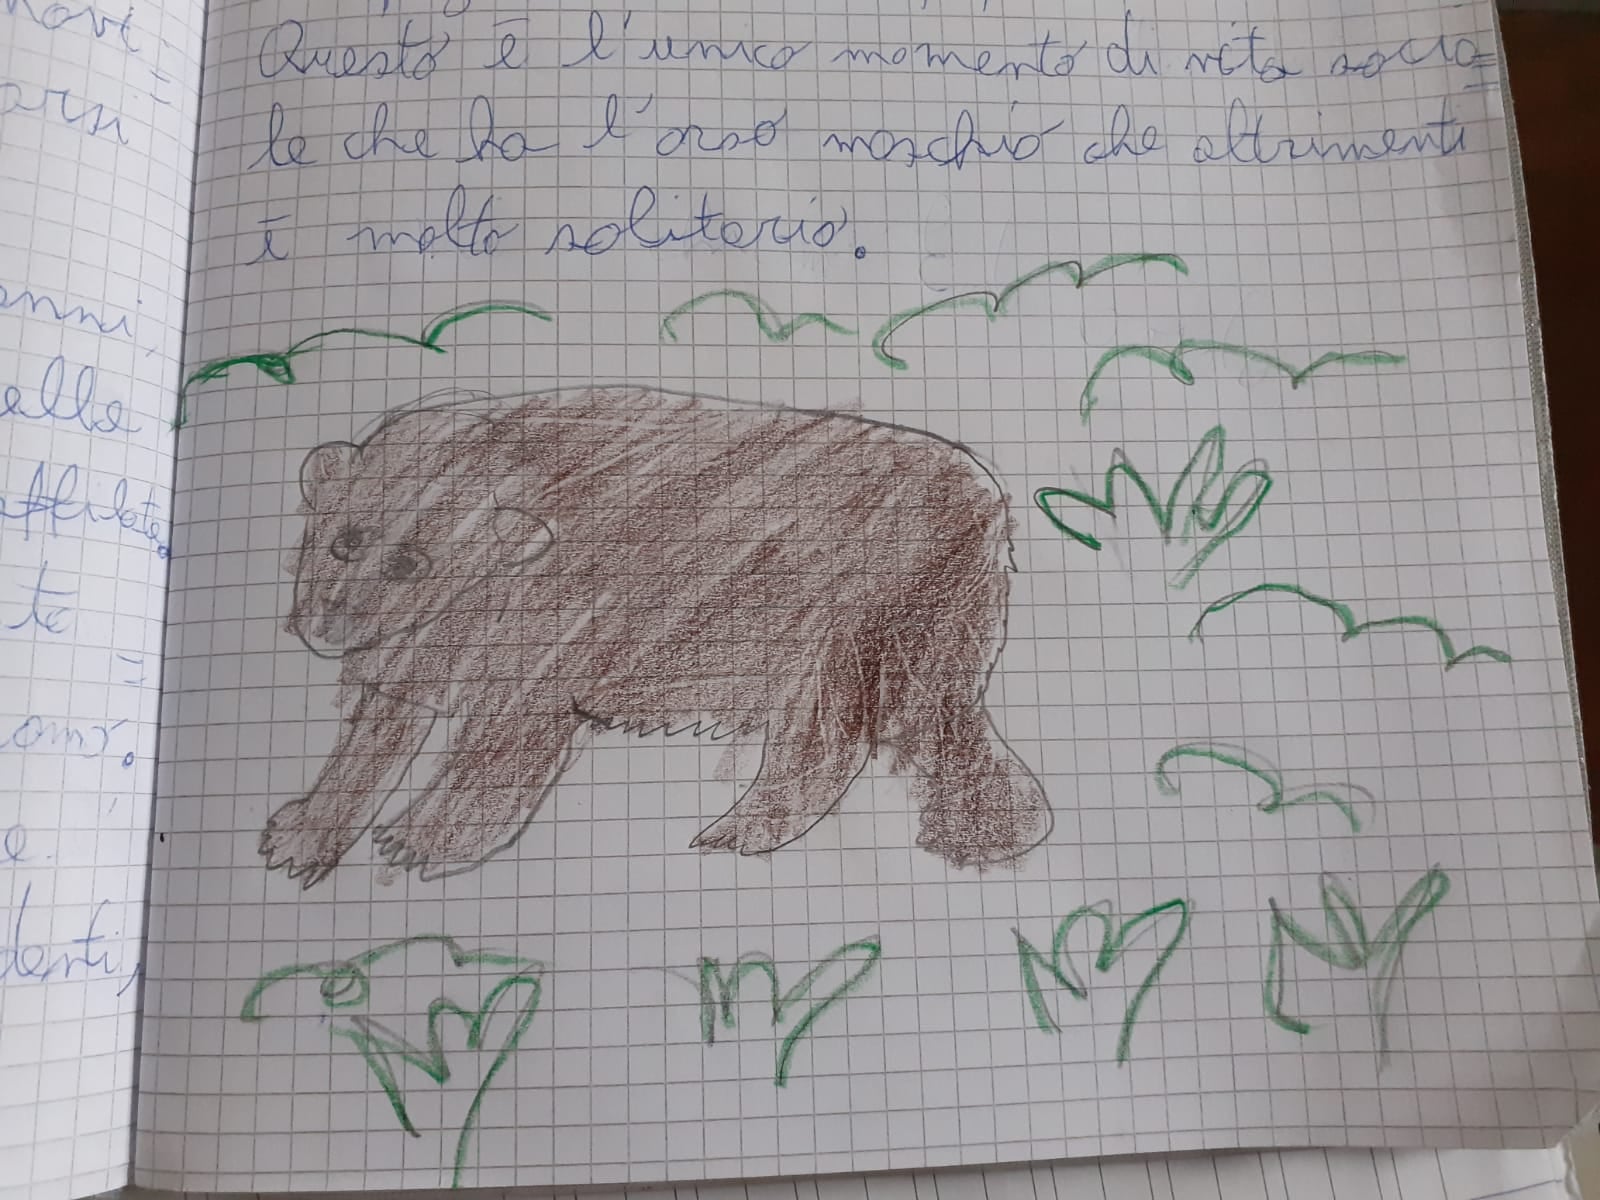 novi=
arsi
anni,
elle
affilate.
te
=
omr.
e
denti,
Questo è l'unico momento di vita socia=
le che ha l'orso maschio che altrimenti
è molto solitario.